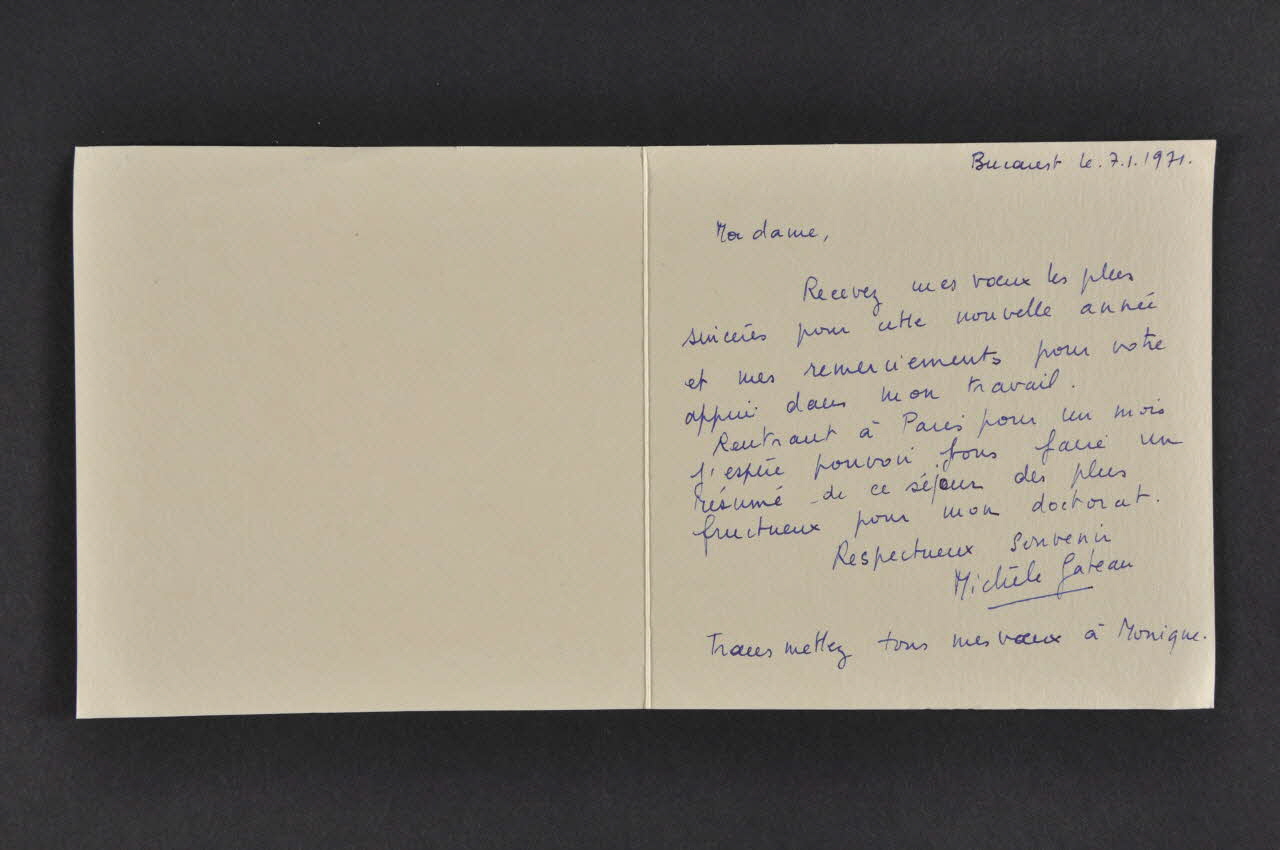 Bucarest le. 7.1.1971.
Madame,
Recevez mes vœux les plus
sincères pour cette nouvelle année
et mes remerciements pour votre
appui dans mon travail.
Rentrant à Paris pour un mois
j'espère pouvoir vous faire un
résumé de ce séjour des plus
fructueux pour mon doctorat.
Respectueux souvenir
Michèle Gateau
Transmettez tous mes vœux à Monique.